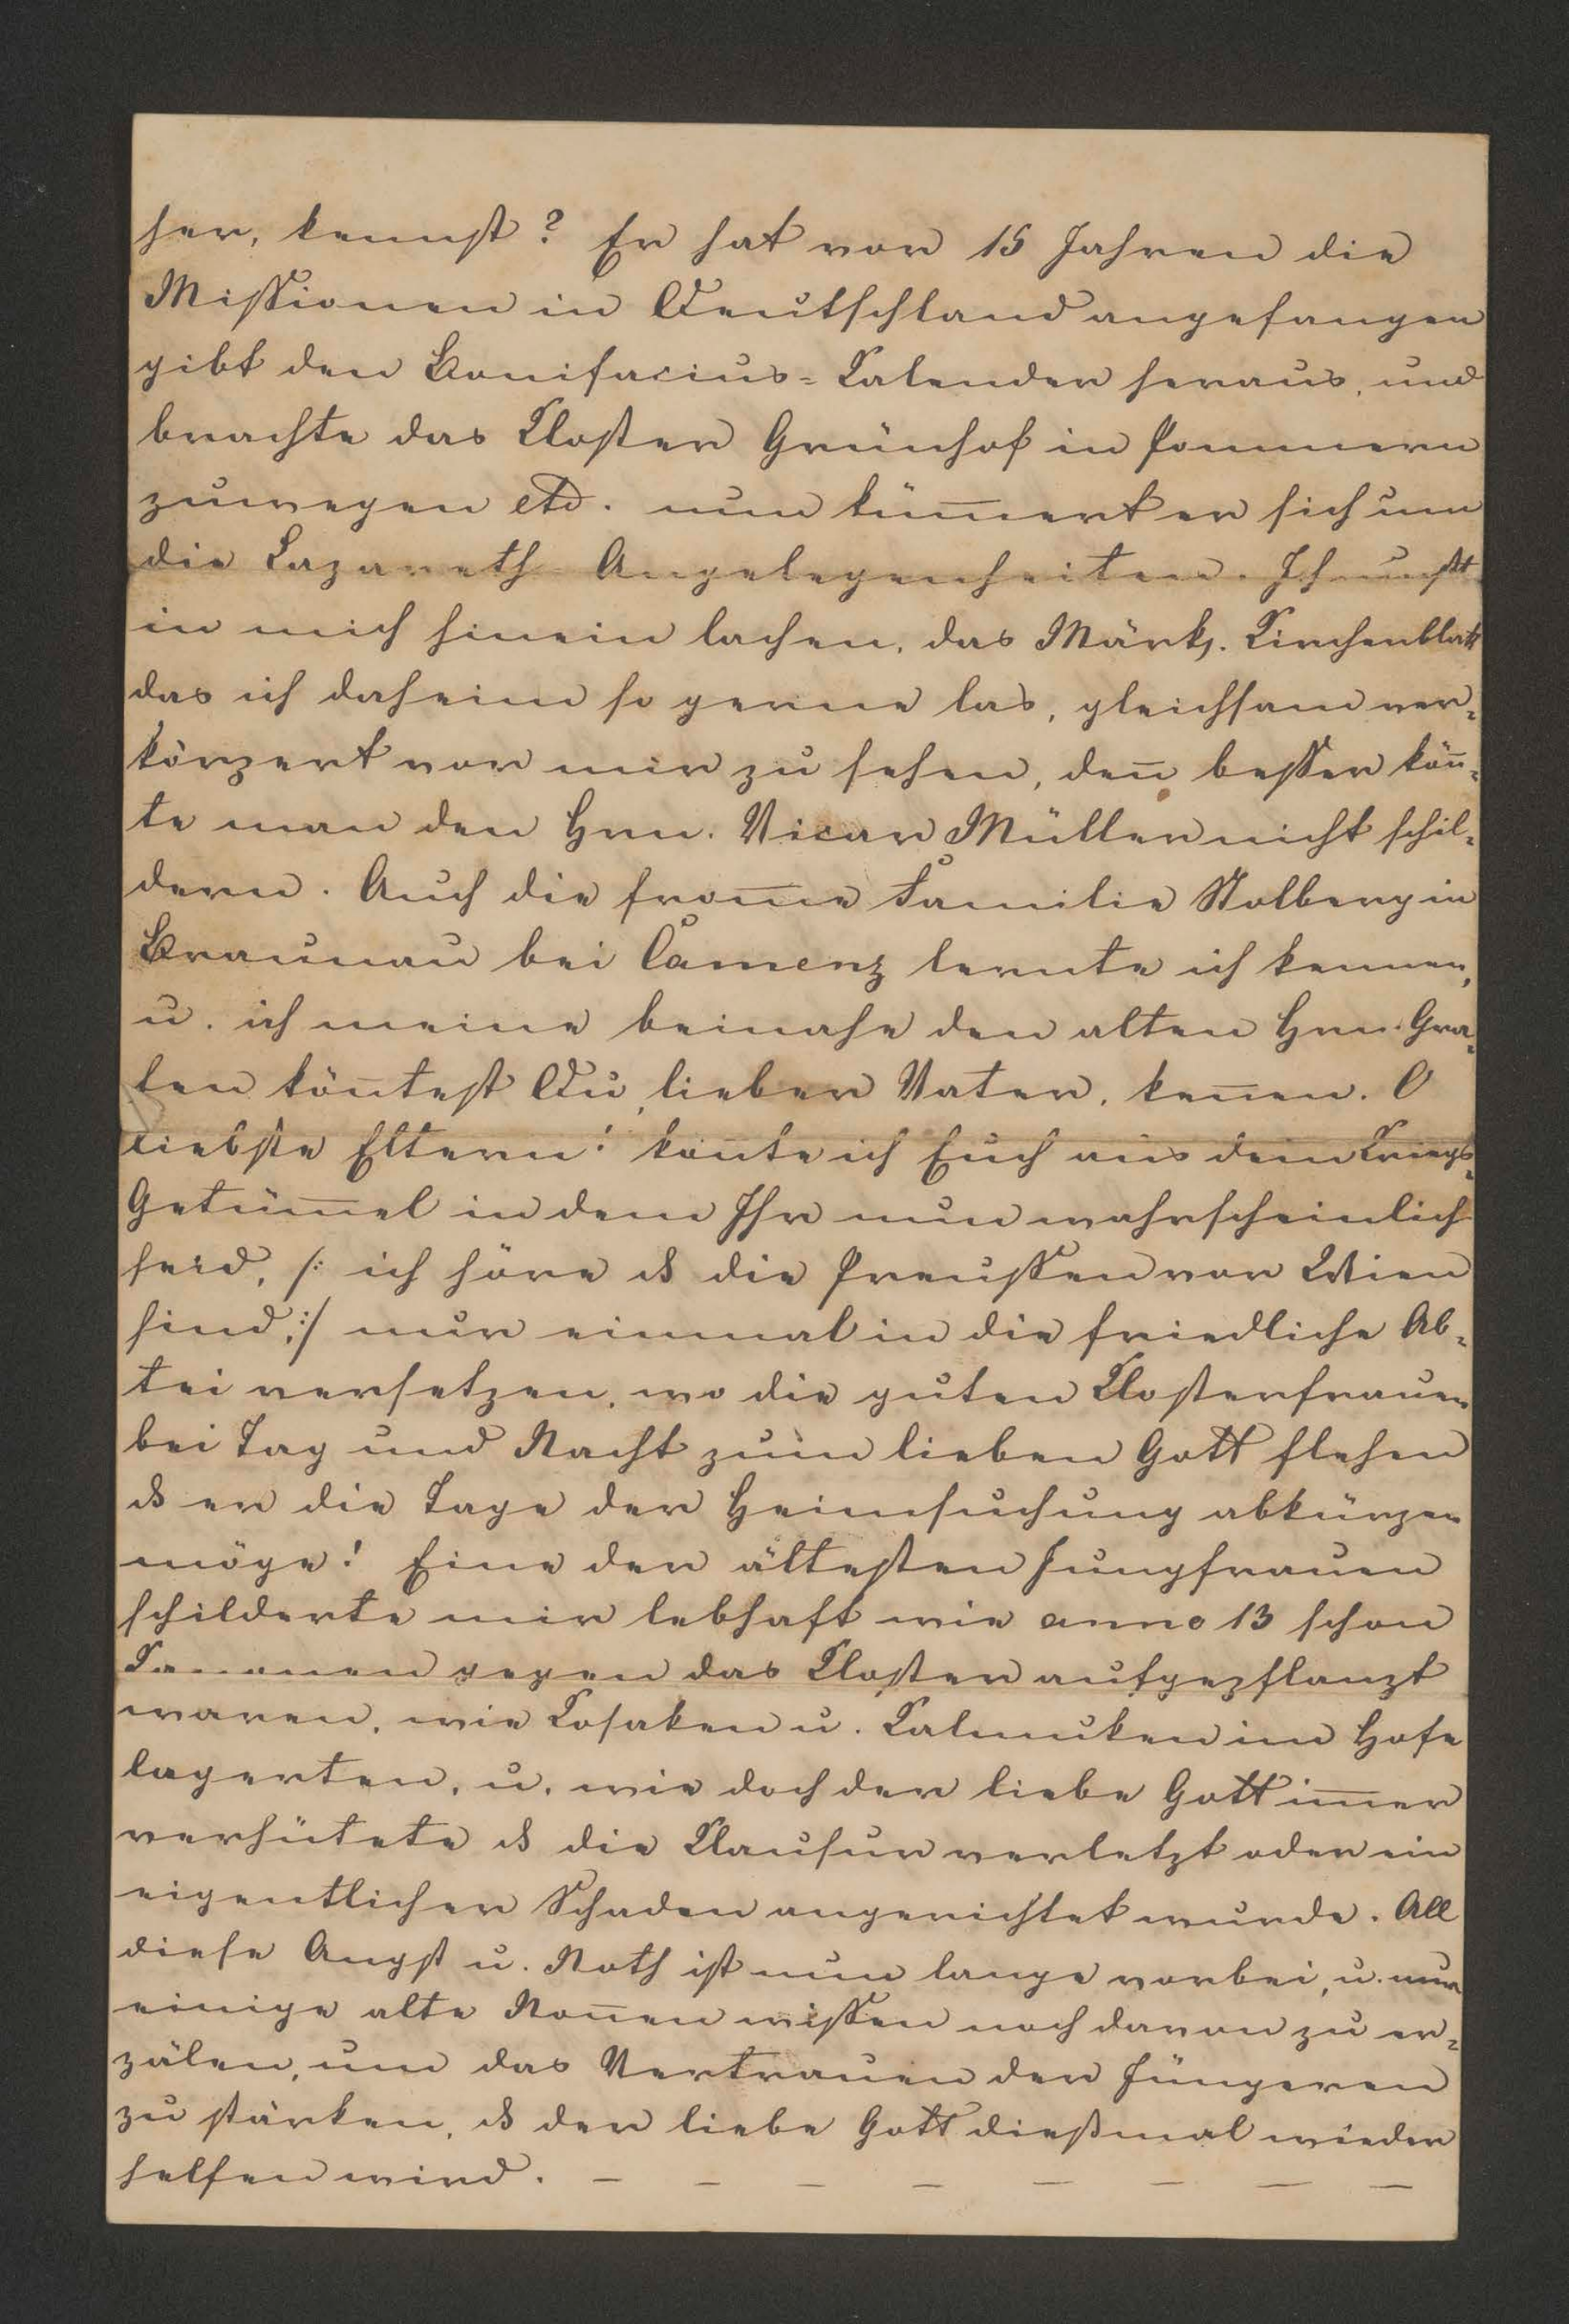 her, kennst? Er hat vor 15 Jahren die
Missionen in Deutschland angefangen
gibt den Bonifacius-Kalender heraus, und
brachte das Kloster Grünhof in Pommern
zuwegen etc. nun küm̅ert er sich um
die Lazareth Angelegenheiten. Ich mußt
in mich hinein lachen, das Märk. Kirchenblatt
das ich daheim so gerne las, gleichsam ver-
körpert vor mir zu sehen, den̅ besser kön̅-
te man den Hrn. Vicar Müller nicht schil-
dern. Auch die from̅e Familie Stolberg in
Braunau bei Camenz lernte ich kennen,
u. ich meine beinahe den alten Hrn. Gra-
fen kön̅test Du, lieber Vater, ken̅en. O
liebste Eltern! könte ich Euch aus dem Kriegs-
Getüm̅el in dem Ihr nun wahrscheinlich
seid, /: ich höre dß die Preussen vor Wien
sind, :/ nur einmal in die friedliche Ab-
tei versetzen, wo die guten Klosterfrauen
bei Tag und Nacht zum lieben Gott flehen
dß er die Tage der Heimsuchung abkürzen
möge! Eine der ältesten Jungfrauen
schilderte mir lebhaft wie anno 13 schon
Kanonen gegen das Kloster aufgepflanzt
waren, wie Kosaken u. Kalmuken im Hofe
lagerten, u. wie doch der liebe Gott im̅er
verhütete dß die Klausur verletzt oder ein
eigentlicher Schaden angerichtet wurde. All
diese Angst u. Noth ist nun lange vorbei, u. nur
einige alte Non̅en wissen noch davon zu er-
zälen, um das Vertrauen der Jüngeren
zu stärken, dß der liebe Gott dießmal wieder
helfen wird. – – – – – – – –